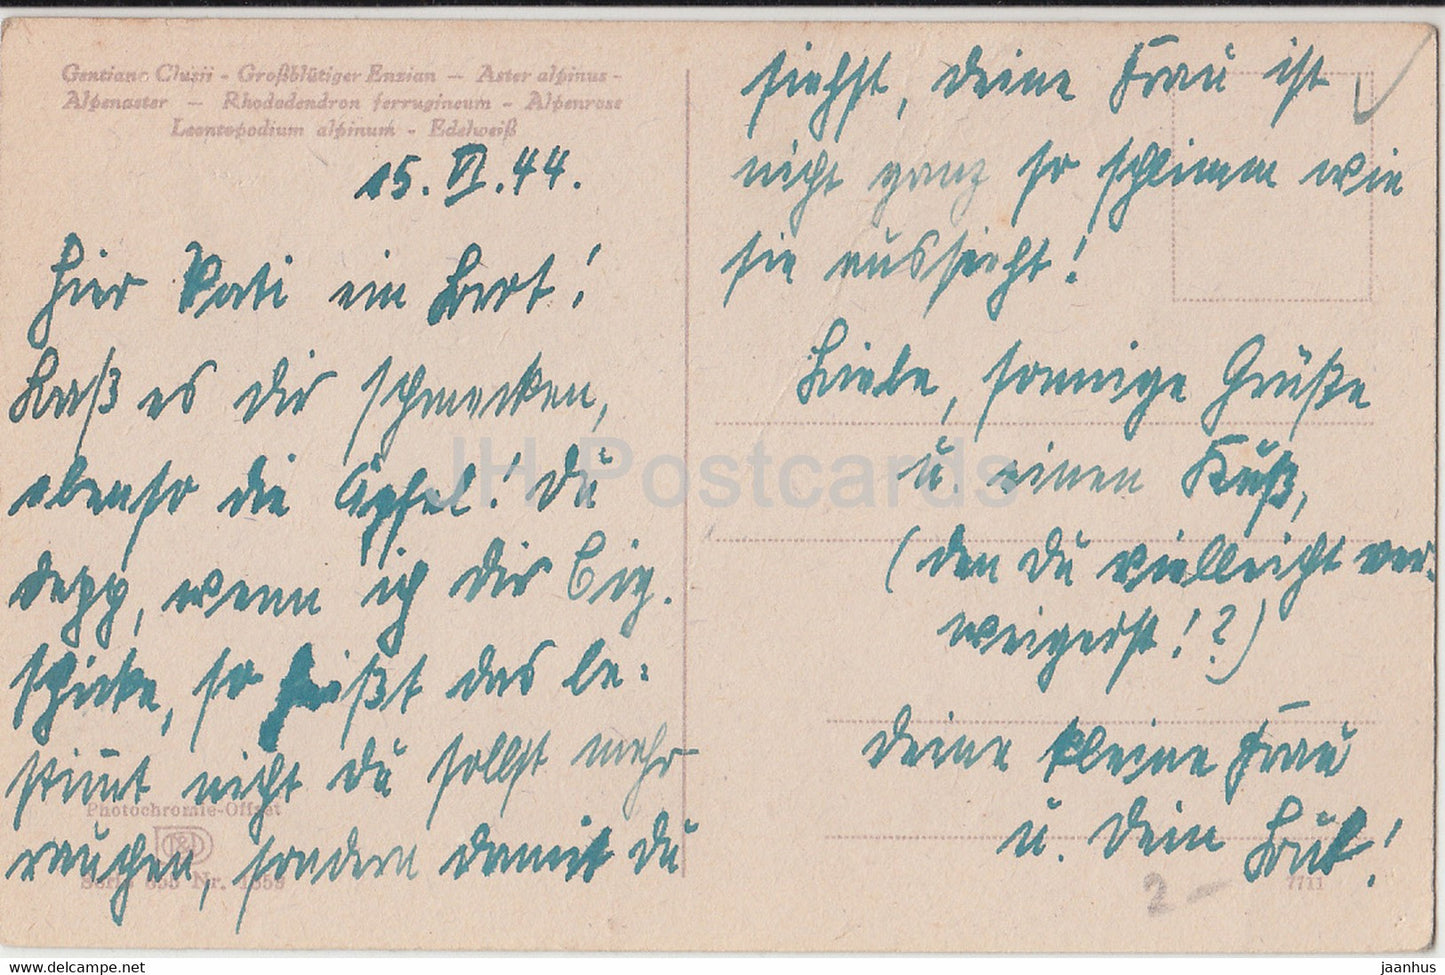 Gentiana Clusii - Großblütiger Enzian — Aster alpinus -
Alpenaster — Rhododendron ferrugineum - Alpenrose
Leontopodium alpinum - Edelweiß
15. VI. 44.
Hier Vati ein Brot!
Laß es dir schmecken,
ebenso die Äpfel! Du
Depp, wenn ich dir Cig.
schicke, so heißt das be-
stimmt nicht du sollst mehr
rauchen, sondern damit du
siehst, deine Frau ist
nicht ganz so schlimm wie
sie aussieht!
Liebe, sonnige Grüße
u. einen Kuß,
(den du vielleicht ver-
weigerst!?)
deine kleine Frau
u. dein
Photochromie-Offset
Serie 655 Nr.
7711
2 -
JH Postcards
jaanhus